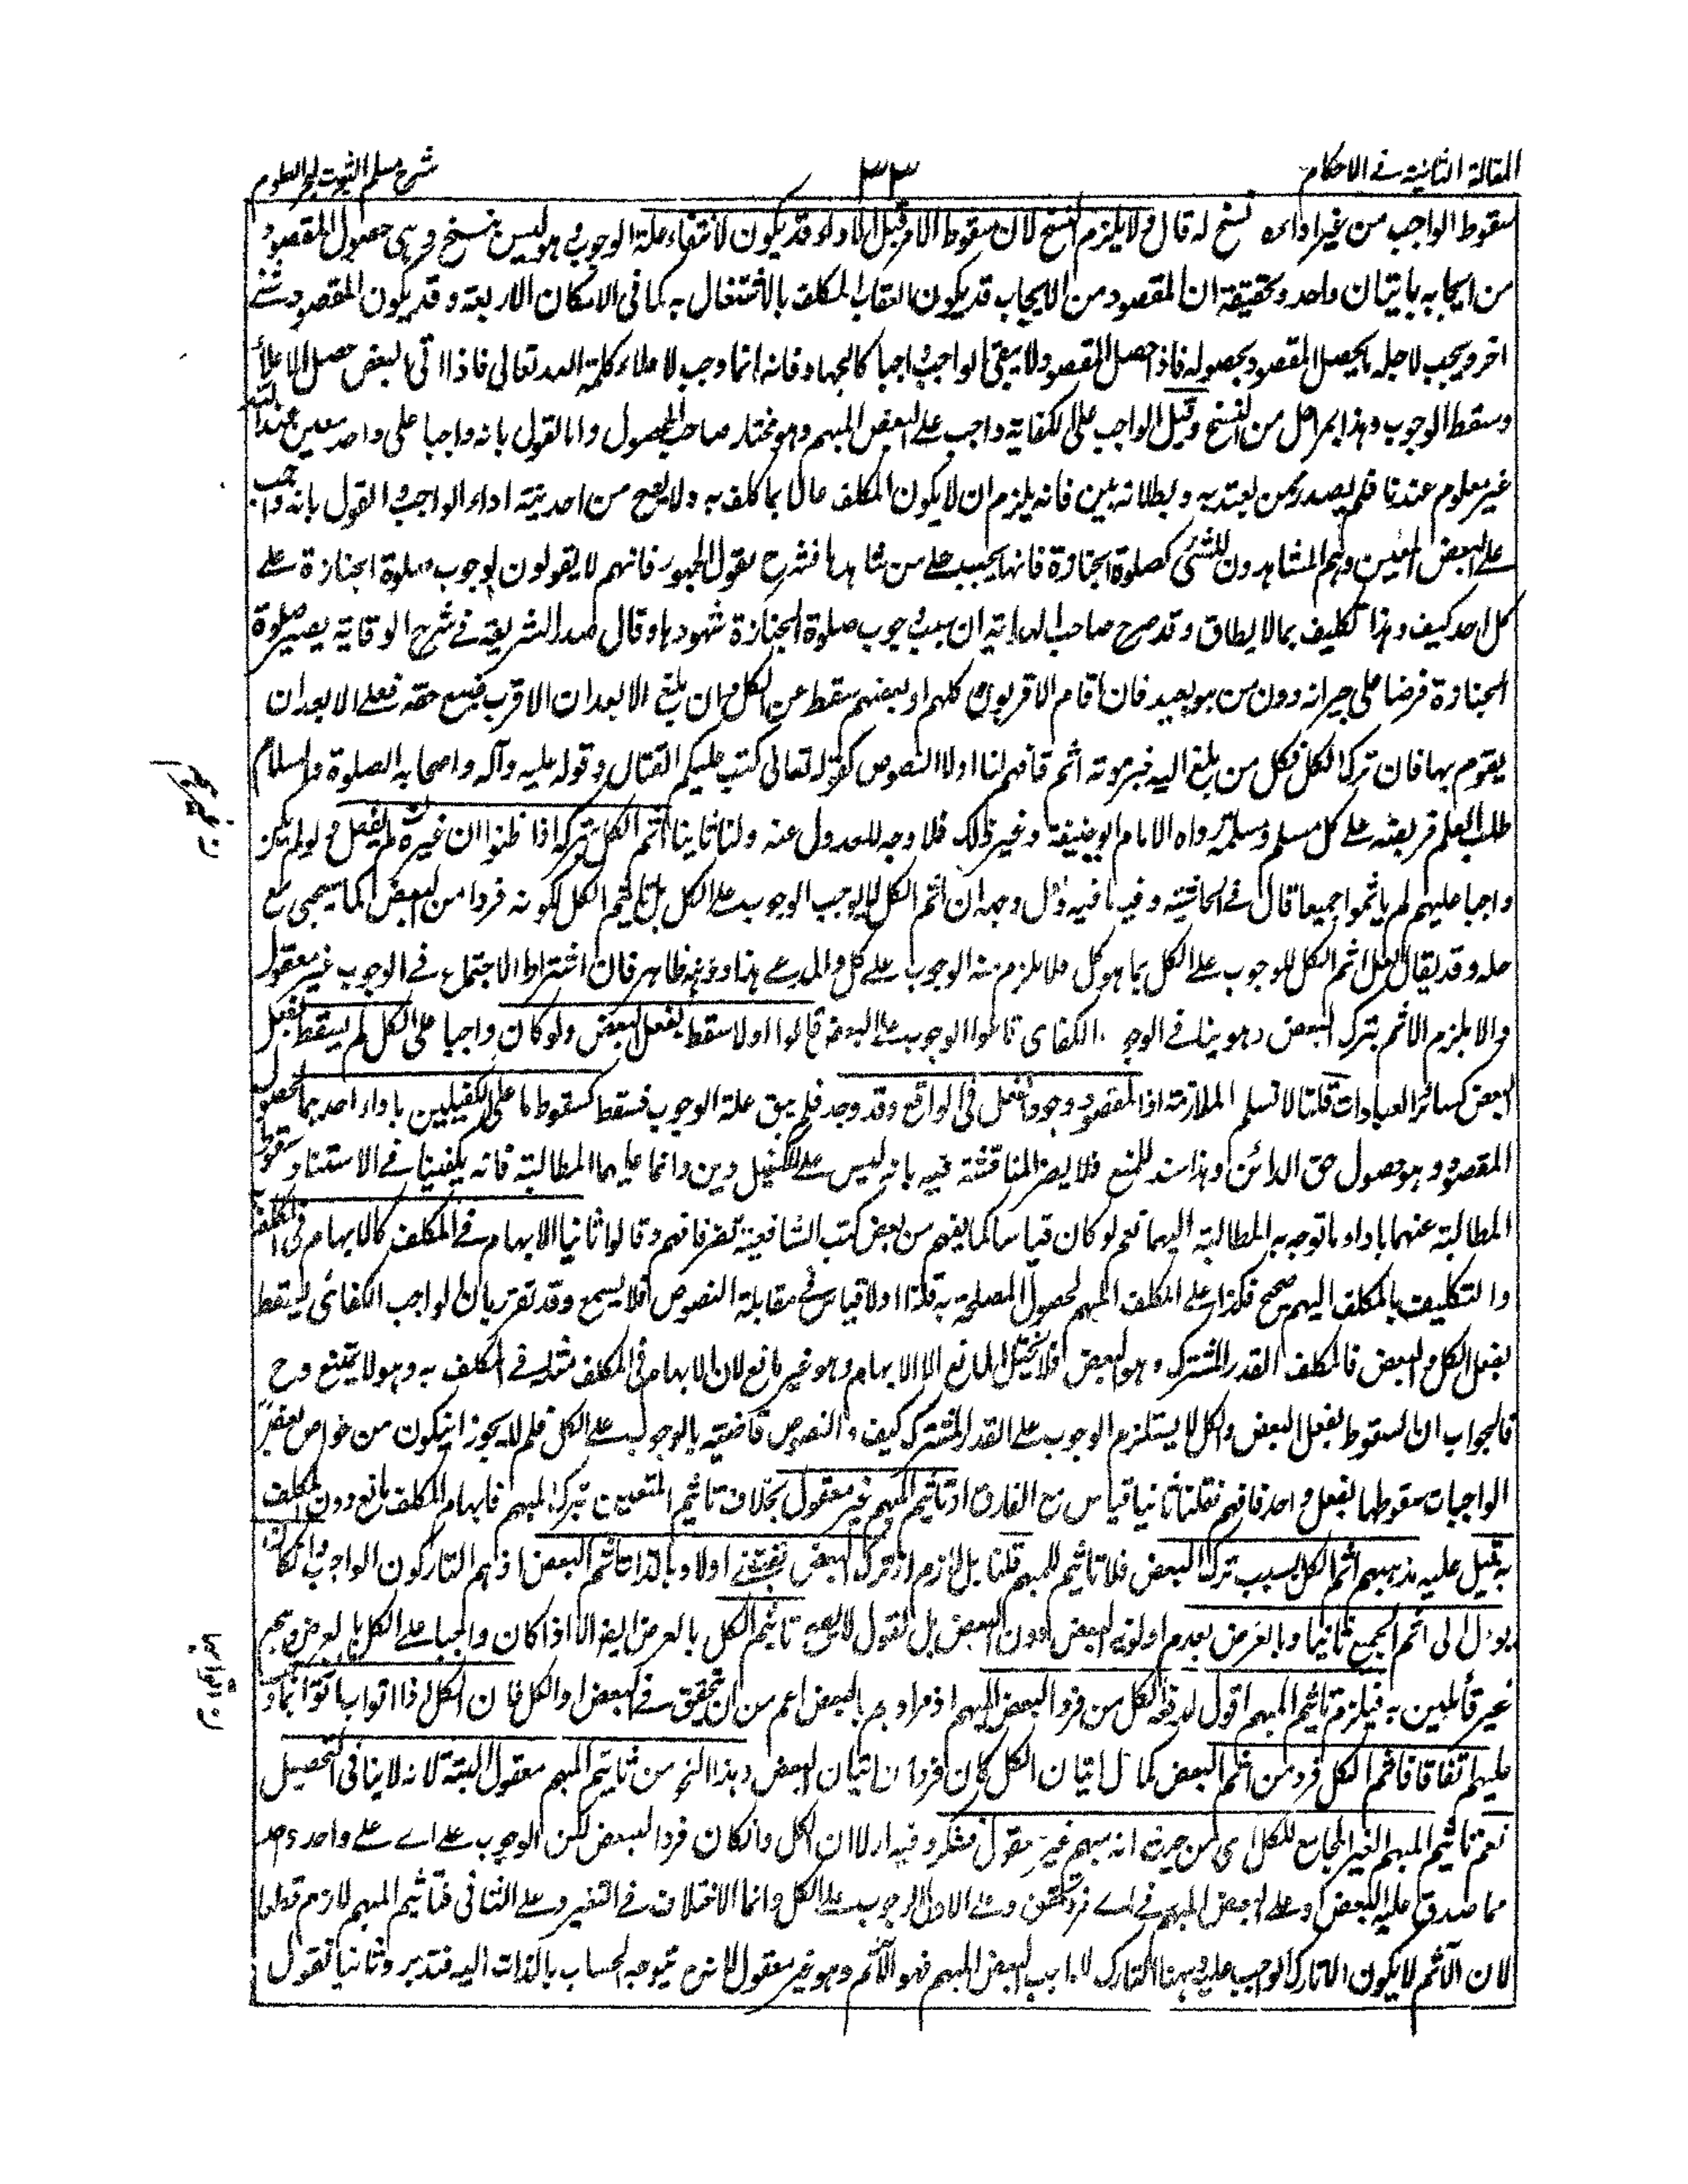 المقالة الثانية في الاحكام
٣٣
شرح مسلم الثبوت لبحر العلوم
سقوط الواجب من غير ادائه نسخ له قال ولا يلزم النسخ لان سقوط الامر قبل الاداء قد يكون لانتفاء علة الوجوب وهو ليس بنسخ وهي حصول المقصود
من ايجابه باتيان واحد وتحقيقه ان المقصود من الايجاب قد يكون اتعاب المكلف بالاشتغال به كما في الاركان الاربعة وقد يكون المقصود شئ
اخر ويجب لاجله ما يحصل المقصود بحصوله فاذا حصل المقصود لا يبقى الواجب واجبا كالجهاد فانه انما وجب لاعلاء كلمة الله تعالى فاذا اتى البعض حصل الاعلاء
وسقط الوجوب وهذا بمراحل من النسخ وقيل الواجب على الكفاية واجب على البعض المبهم وهو مختار صاحب المحصول واما القول بانه واجب على واحد معين عند الله
غير معلوم عندنا فلم يصدر ممن يعتد به وبطلانه بين فانه يلزم ان لا يكون المكلف عالما بما كلف به ولا يصح من احد نية اداء الواجب والقول بانه واجب
على البعض المعين وهم المشاهدون للشئ كصلوة الجنازة فانها يجب على من شاهدها فشرح لقول الجمهور فانهم لا يقولون بوجوب صلوة الجنازة على
كل احد كيف وهذا تكليف بما لا يطاق وقد صرح صاحب الهداية ان سبب وجوب صلوة الجنازة شهودها وقال صدر الشريعة في شرح الوقاية يصير صلوة
الجنازة فرضا على جيرانه دون من هو بعيد فان اقام الاقربون كلهم او بعضهم سقط عن الكل وان بلغ الابعد ان الاقرب ضيع حقه فعلى الابعد ان
يقوم بها فان ترك الكل فكل من بلغ اليه خبر موته اثم فافهم لنا اولا النصوص كقوله تعالى كتب عليكم القتال وقوله عليه وآله واصحابه الصلوة والسلام
طلب العلم فريضة على كل مسلم ومسلمة رواه الامام ابو حنيفة وغير ذلك فلا وجه للعدول عنه ولنا ثانيا اثم الكل بتركه اذا ظنوا ان غيرهم لم يفعل ولو لم يكن
واجبا عليهم لم ياثموا جميعا قال في الحاشية وفيه ما فيه ولعل وجهه ان اثم الكل لا يوجب الوجوب على الكل بل تاثيم الكل لكونه فردا من البعض كما سيجئ مع
حله وقد يقال لعل اثم الكل للوجوب على الكل بما هو كل فلا يلزم منه الوجوب على كل والمدعى هذا ودفعه ظاهر فان اشتراط الاجتماع في الوجوب غير معقول
والا يلزم الاثم بترك البعض وهو ينافي الوجوب الكفائي قائلوا الوجوب على البعض قالوا اولا سقط بفعل البعض ولو كان واجبا على الكل لم يسقط بفعل
البعض كسائر العبادات قلنا لا نسلم الملازمة اذ المقصود وجود الفعل في الواقع وقد وجد فلم يبق علة الوجوب فسقط كسقوط ما على الكفيلين باداء احدهما لحصول
المقصود وهو حصول حق الدائن وهذا سند للمنع فلا يضر المناقشة فيه بانه ليس على الكفيل دين وانما عليهما المطالبة فانه يكفينا في الاستناد سقوط
المطالبة عنهما باداء ما توجه به المطالبة اليهما نعم لو كان قياسا كما يفهم من بعض كتب الشافعية تضر فافهم وقالوا ثانيا الابهام في المكلف كالابهام في المكلف به
والتكليف بالمكلف المبهم صحيح فكذا على المكلف المبهم لحصول المصلحة به قلنا اولا قياس في مقابلة النصوص فلا يسمع وقد تقرر بان الواجب الكفائي يسقط
بفعل الكل والبعض فالمكلف القدر المشترك وهو البعض فلا يتخيل المانع الا الابهام وهو غير مانع لان الابهام في المكلف مثله في المكلف به وهو لا يمنع وح
فالجواب ان السقوط بفعل البعض والكل لا يستلزم الوجوب على القدر المشترك كيف والنصوص قاضية بالوجوب على الكل فلم لا يجوز ان يكون من خواص بعض
الواجبات سقوطها بفعل واحد فافهم فقلنا ثانيا قياس مع الفارق اذ تاثيم المبهم غير معقول بخلاف تاثيم المتعين بترك المبهم فابهام المكلف مانع دون المكلف
به قيل عليه مذهبهم اثم الكل بسبب ترك البعض فلا تاثيم للمبهم قلنا بل لازم اذ ترك البعض يقتضي اولا وبالذات اثم البعض اذ هم التاركون الواجب وان كان
يؤل الى اثم الجميع ثانيا وبالعرض بعدم اولوية البعض دون البعض بل نقول لا يصح تاثيم الكل بالعرض ايضا الا اذا كان واجبا على الكل بالعرض وهم
غير قائلين به فيلزم تاثيم المبهم اقول لدفعه الكل من فرد البعض المبهم اذ مرادهم بالبعض اعم من ان يتحقق في البعض او الكل فان الكل اذا اتوا به اتوا بما وجب
عليهم اتفاقا فاثم الكل فرد من اثم البعض كما ان اتيان الكل كان فردا من اتيان البعض وبهذا النحو من تاثيم المبهم معقول البتة لانه لا ينافي التحصيل
نعم تاثيم المبهم الغير المجامع للكل اي من حيث انه مبهم غير معقول فتفكر وفيه اولا ان الكل وان كان فردا للبعض لكن الوجوب على اي على واحد واحد
مما صدق عليه البعض او على البعض المبهم في اي فرد تحقق وعلى الاول الوجوب على الكل وانما الاختلاف في التعبير وعلى الثاني فتاثيم المبهم لازم قطعا
لان الآثم لا يكون الا تارك الواجب عليه وههنا التارك للواجب البعض المبهم فهو الآثم وهو غير معقول لانه يتوجه الحساب بالذات اليه فتدبر وثانيا نقول